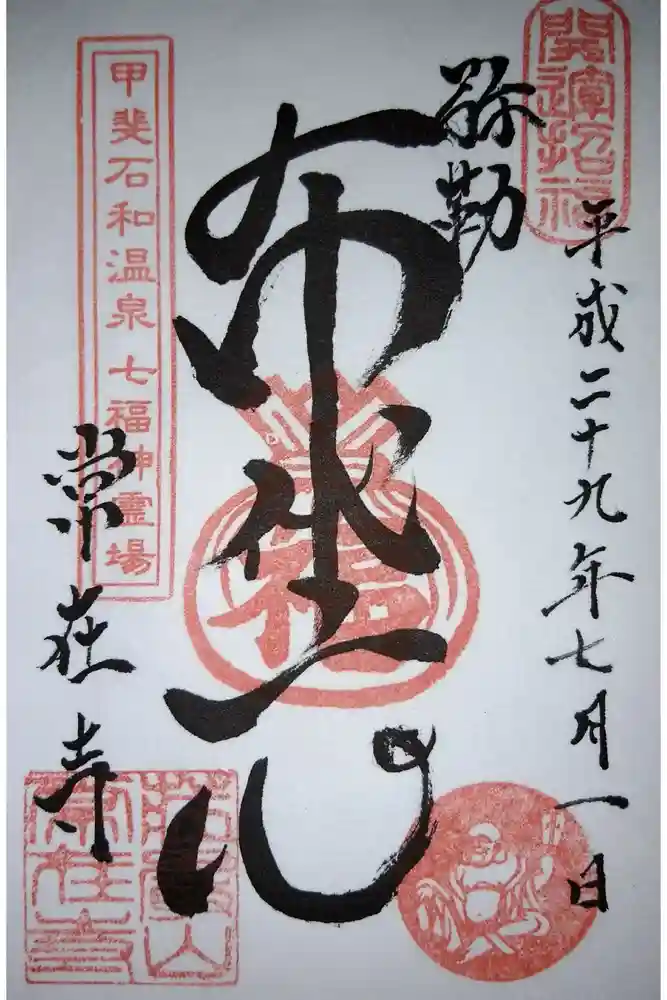 開運招福
平成二十九年七月一日
弥勒
布袋山
福
甲斐石和温泉七福神霊場
常在寺